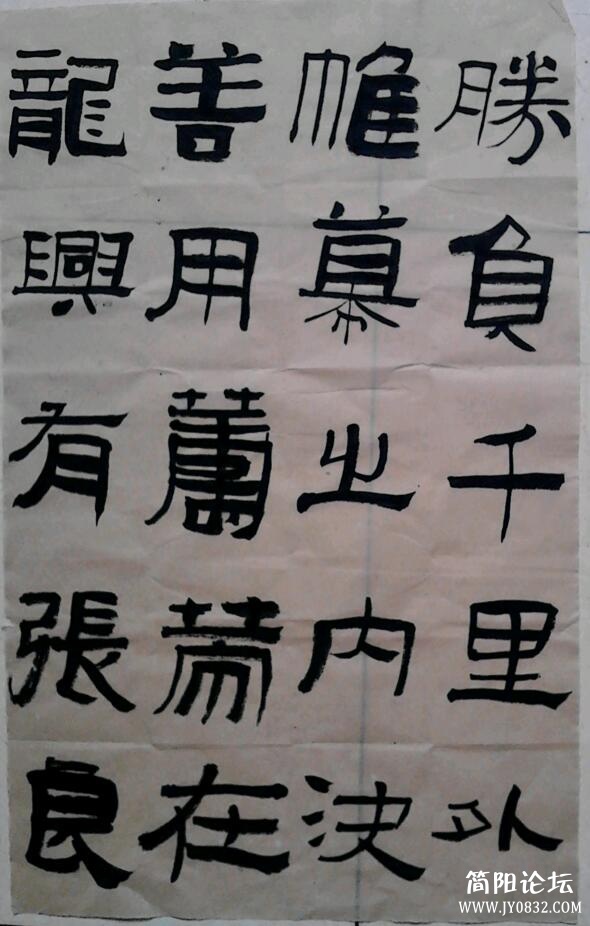 龍興有張良
善用在
帷幕之内決
勝負千里外
简阳论坛
www.JY0832.com